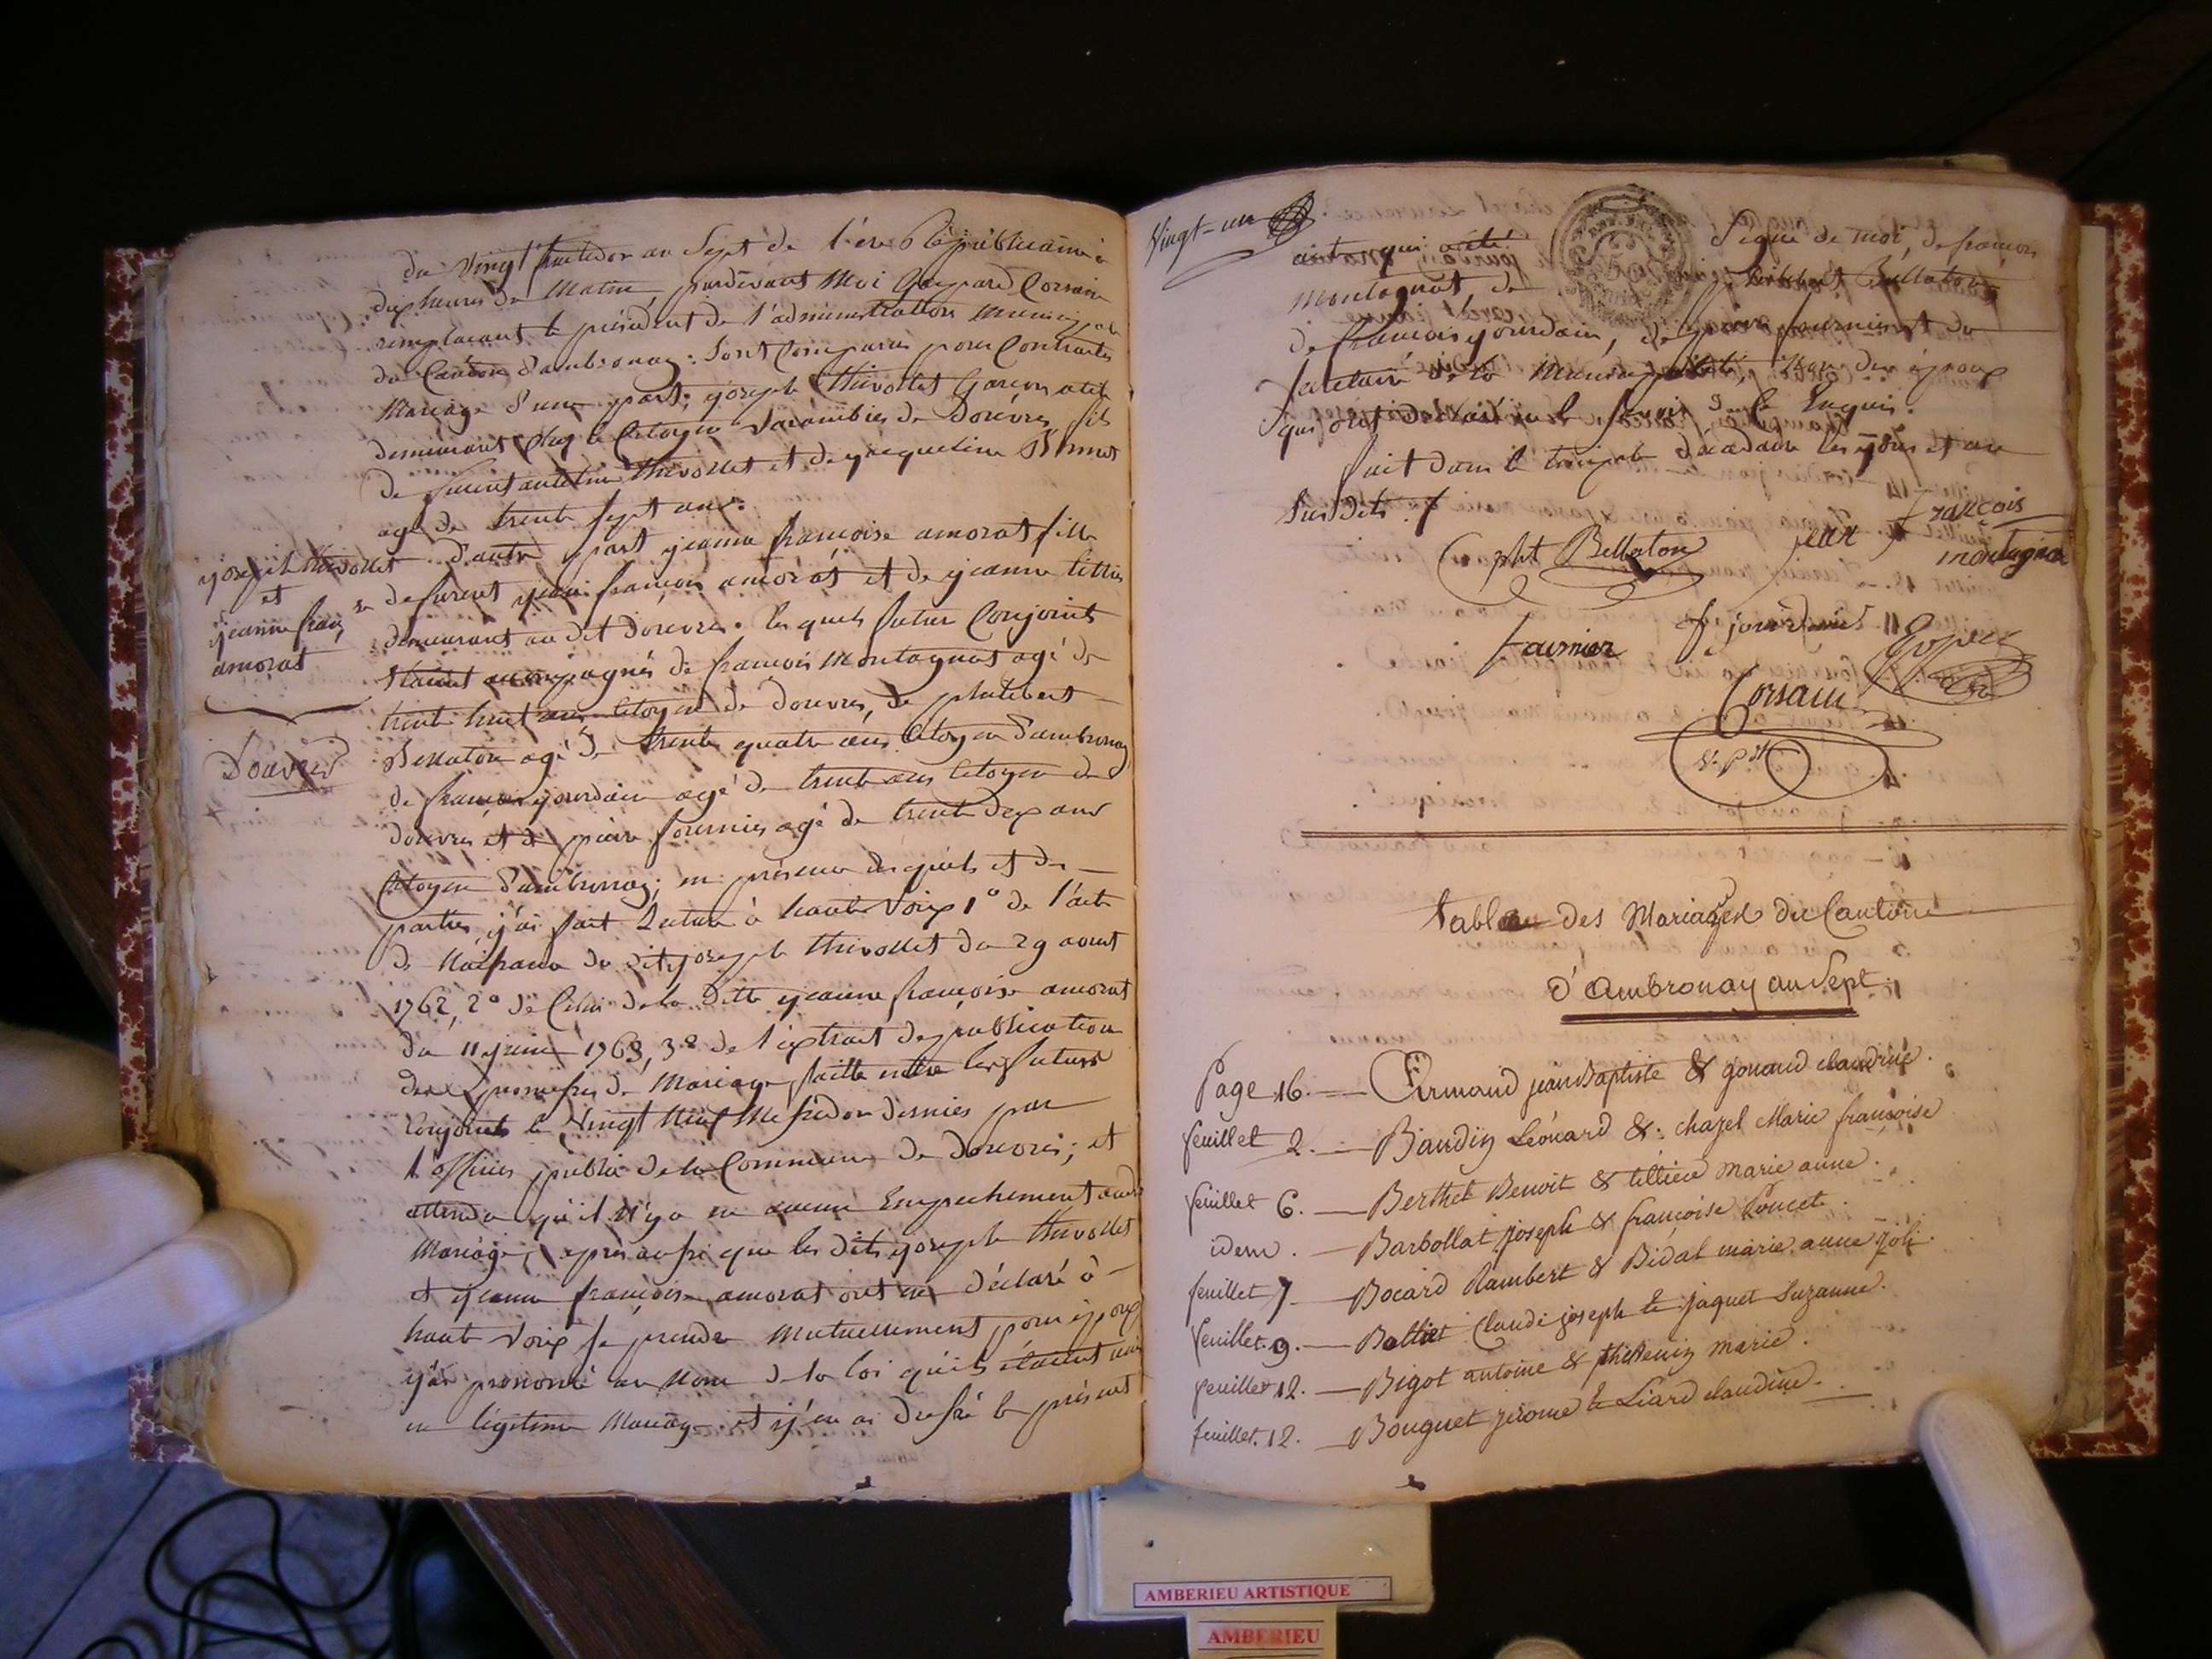 du vingt fructidor an Sept de l'ère Républicaine à
dix heures du Matin, pardevant Moi Gaspard Corsain
remplacant le président de l'administration Municipale
du Canton d'ambronay: sont Comparus pour Contracter
Mariage d'une part, joseph thivollet Garcon
demeurant chez le Citoyen de Douvres, fils
de thivollet et de jacqueline
agé de trente sept ans.
joseph thivollet
et
jeanne franç.se
amorat
Douvres
d'autre part jeanne francoise amorat fille
de jean françois amorat et de jeanne
demeurant au dit Douvres. les quels futur Conjoints
étaient accompagnés de francois Montagnat agé de
trente huit ans Citoyen de Douvres, de philibert
Bellaton agé de trente quatre ans Citoyen d'ambronay
de francois jourdain agé de trente ans Citoyen de
Douvres et de pierre fournier agé de trente dex ans
Citoyen d'ambronay; en présence desquels et des
parties, j'ai fait Lecture à haute Voix 1° de l'acte
de Naissance du dit joseph thivollet du 29 aout
1762, 2° de Celui de la ditte jeanne francoise amorat
du 11 juin 1763, 3° de l'extrait de publication
des promesses de Mariage faitte entre les futurs
Conjoints le Vingt Neuf Messidor dernier par
l'officier public de la Commune de Douvres; et
attendu qu'il N'y a eu aucun Empechement audit
Mariage; après aussi que les dits joseph thivollet
et jeanne françoise amorat ont eu déclaré à
haute Voix se prendre Mutuellement pour époux
j'ai prononcé au Nom de la loi qu'ils étaient unis
en légitime Mariage et j'en ai dressé le présent
Vingt-un
acte qui a été Signé de moi, de francois
Montagnat, de philibert Bellaton
de francois jourdain, de pierre fournier et du
Secrétaire de la Municipalité, Non des époux
qui ont déclaré ne le savoir de ce Enquis.
fait dans le temple décadaire les jour et an
Susdits.
Phbt Bellaton jean François
montagnat
Fournier f jourdain
Corsain
V. Pdt
Table des Mariages du Canton
d'Ambronay an Sept.
Page 16. — Armand jean Baptiste & gonand claudine.
feuillet 2. — Baudin Léonard & chazel Marie françoise
feuillet 6. — Berthet Benoit & tilliere Marie anne.
idem. — Barbollat joseph & francoise Poncet.
feuillet 7. — Bocard Rambert & Bidal marie anne joli.
feuillet. 9. — Balliet Claude joseph & jaquet Suzanne.
feuillet 12. — Bigot antoine & thevenin marie.
feuillet. 12. — Bouguet jérome & Liard claudine.
AMBERIEU ARTISTIQUE
AMBERIEU